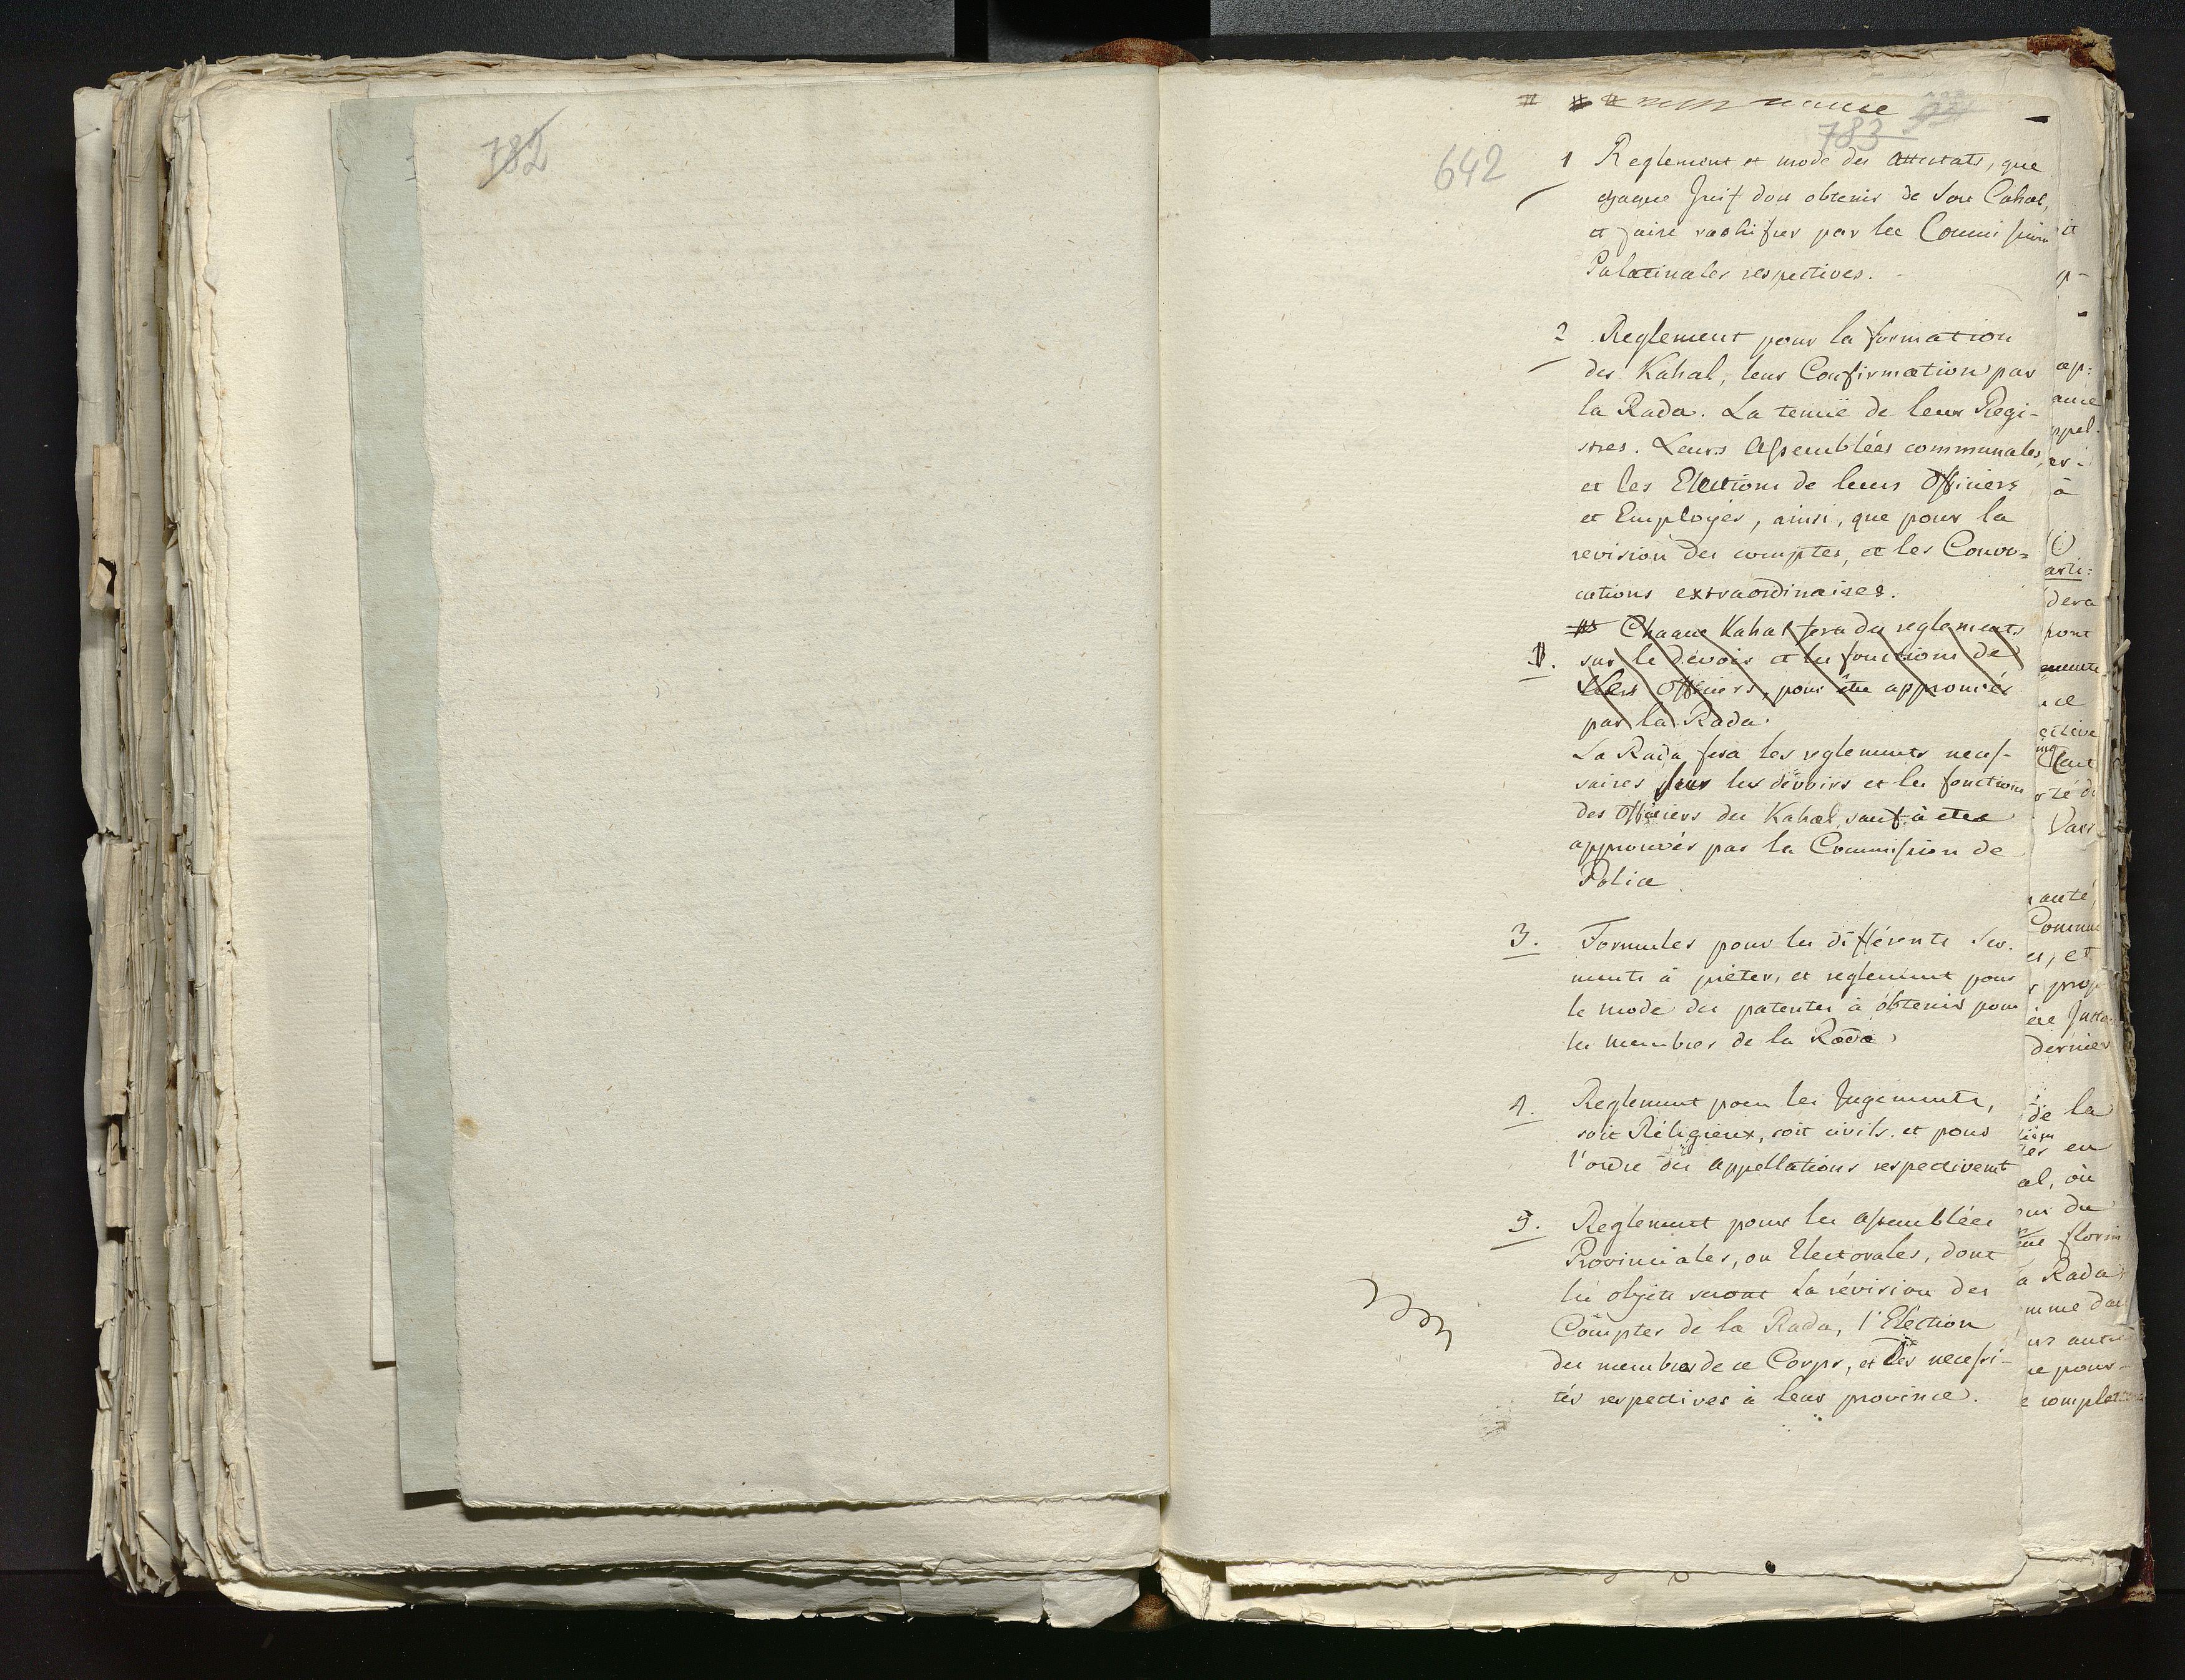 782
783
642
1 Reglement et mode des attestats, que
chaque Juif dois obtenir de son Cahal,
et faire rathifier par les Commissions
Palatinales respectives.
2 Reglement pour la formation
des Kahal, leur Confirmation par
la Rada. La tenuë de leur Regi-
stres. Leurs Assemblées communales,
et les Elections de leurs Officiers
et Employés, ainsi, que pour la
revision des comptes, et les Convo=
cations extraordinaires.
Chaque Kahal fera des reglements
sur le devoir et les fonctions de
Officiers, pour être approuvés
par la Rada.
La Rada fera les reglements neces-
saires sur les devoirs et les fonctions
des Officiers du Kahal, sauf à etre
approuvés par la Commission de
Police
3. Formules pour les différents Ser-
ments à prêter, et reglement pour
le mode des patentes à obtenir pour
les membres de la Rada
4. Reglement pour les Jugements,
soit Réligieux, soit civils. et pour
l'ordre des appellations respectivemt
5. Reglement pour les assemblées
Provinciales, ou Electorales, dont
les objets seront la révision des
Comptes de la Rada, l'Election
des membres de ce Corps, et des necessi-
tés respectives à leur province.
it
ap:
ance
ppel-
er-
à
arti:
dera
pont
auté,
er, et
dernier
de la
en
al, où
florin
a Rada
ur autre
ce pour-